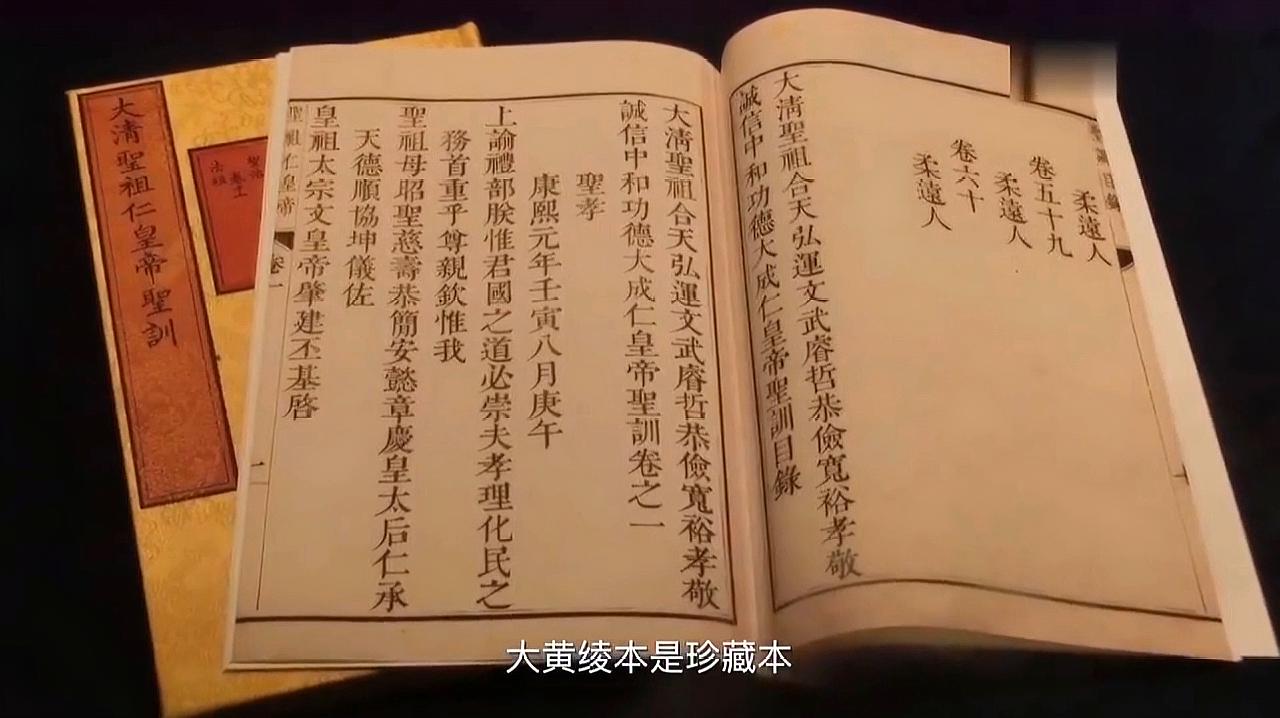 柔遠人
卷五十九
柔遠人
卷六十
柔遠人
大清聖祖合天弘運文武睿哲恭儉寬裕孝敬
誠信中和功德大成仁皇帝聖訓目錄
大清聖祖合天弘運文武睿哲恭儉寬裕孝敬
誠信中和功德大成仁皇帝聖訓卷之一
聖孝
康熙元年壬寅八月庚午
上諭禮部朕惟君國之道必崇夫孝理化民之
務首重乎尊親欽惟我
聖祖母昭聖慈壽恭簡安懿章慶皇太后仁承
天德順協坤儀佐
皇祖太宗文皇帝肇建丕基啓
聖祖仁皇帝
卷一
一
大清聖祖仁皇帝聖訓
大黄绫本是珍藏本